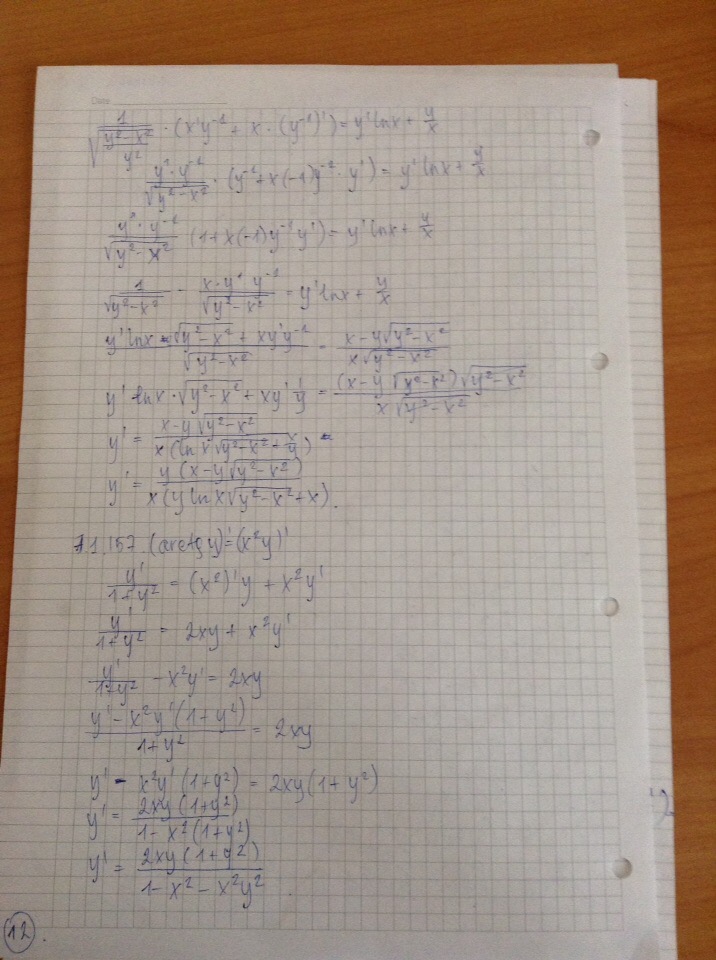 Date
1/√((y²-x²)/y²) · (x'y⁻¹ + x · (y⁻¹)') = y' ln x + y/x
(y² · y⁻¹)/√(y²-x²) · (y⁻¹ + x(-1)y⁻² · y') = y' ln x + y/x
(y² · y⁻¹)/√(y²-x²) (1 + x(-1)y⁻¹ y') = y' ln x + y/x
1/√(y²-x²) - (x · y' y⁻¹)/√(y²-x²) = y' ln x + y/x
(y' ln x √(y²-x²) + xy'y⁻¹)/√(y²-x²) = (x-y√(y²-x²))/(x√(y²-x²))
y' ln x · √(y²-x²) + xy' 1/y = ((x-y√(y²-x²))√(y²-x²))/(x√(y²-x²))
y' = (x-y√(y²-x²))/(x(ln x √(y²-x²) + x/y))
y' = (y(x-y√(y²-x²)))/(x(y ln x √(y²-x²) + x)).
1.157. (arctg y)' = (x²y)'
y'/(1+y²) = (x²)'y + x²y'
y'/(1+y²) = 2xy + x²y'
y'/(1+y²) - x²y' = 2xy
(y' - x²y'(1+y²))/(1+y²) = 2xy
y' - x²y'(1+y²) = 2xy(1+y²)
y' = (2xy(1+y²))/(1-x²(1+y²))
y' = (2xy(1+y²))/(1-x²-x²y²).
12.